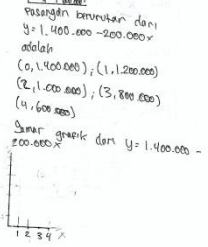 Pasangan berurutan dari
y = 1.400.000 - 200.000x
adalah
(0,1.400.000); (1,1.200.000)
(2,1.000.000); (3,800.000)
(4,600.000)
grafik dari y = 1.400.000 -
200.000x
1 2 3 4 x